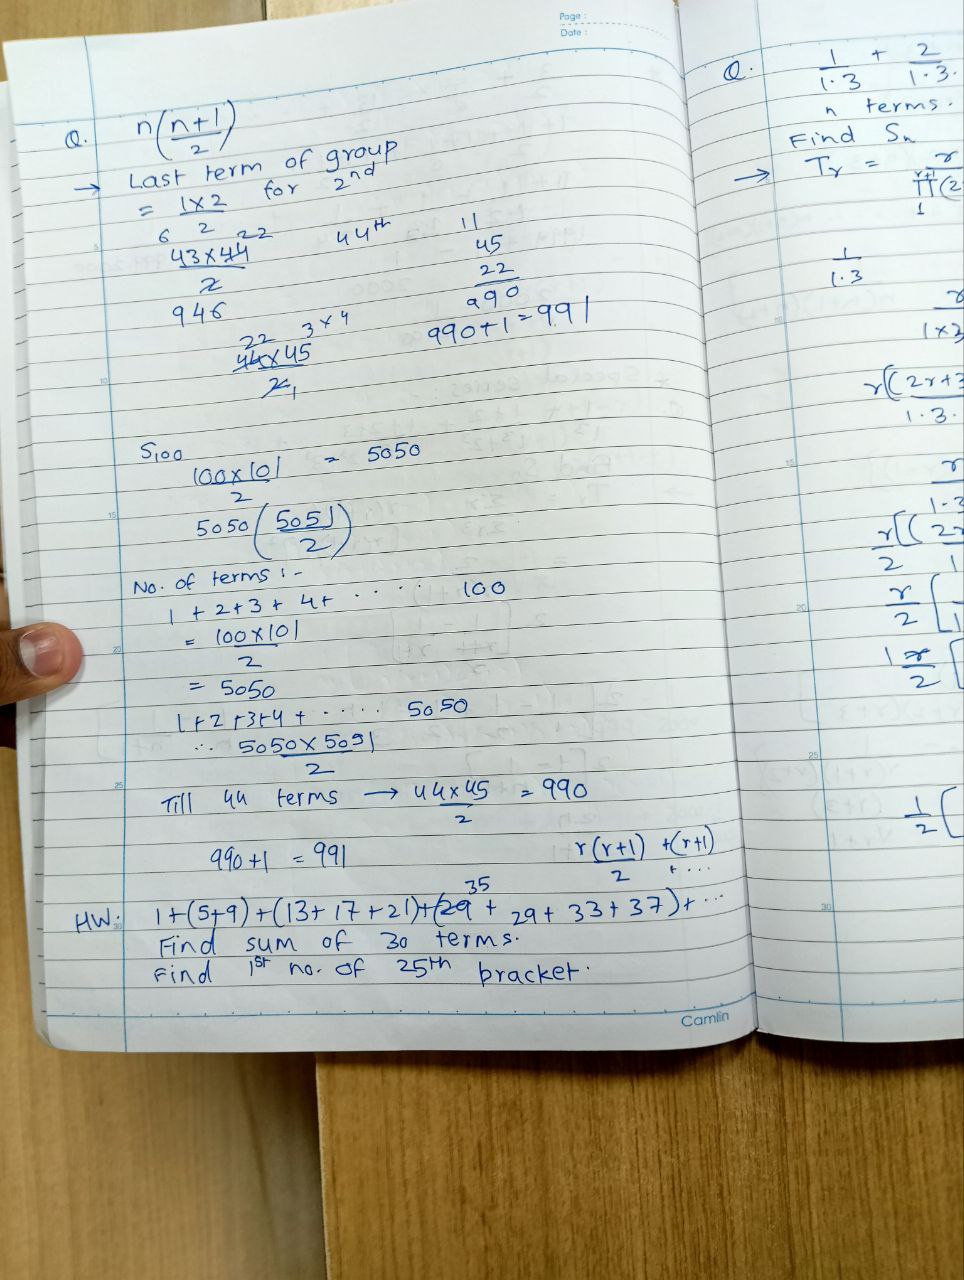 Page :
Date :
Q. n(n+1/2)
→ Last term of group
= 1×2/2 for 2nd
6 22
43×44/2 44th
946
11
45
22
990
990+1=991
22 3×4
44×45/2 1
S100
100×101/2 = 5050
5050(5051/2)
No. of terms :-
1 + 2+3+ 4+ .... 100
= 100×101/2
= 5050
1+2+3+4+ ..... 5050
.. 5050×5051/2
Till 44 terms → 44×45/2 = 990
990+1 = 991
r(r+1)/2 +(r+1) + ...
35
HW: 1+(5+9)+(13+17+21)+(29 + 29+33+37)+...
Find sum of 30 terms.
Find 1st no. of 25th bracket.
Camlin
Q. 1/1·3 + 2/1·3.
n terms.
Find Sn
→ Tr = r
1/1·3
r
1×3
r((2r+3
1·3.
r
1·3
r/2((2r
r/2[
1 r/2[
1/2[
5
10
15
20
25
30
15
20
25
30